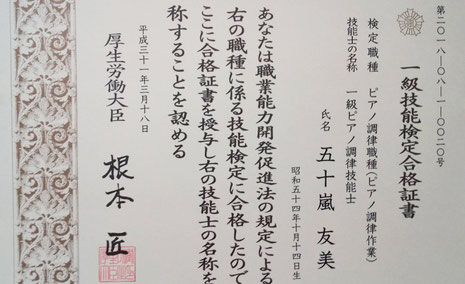 第二〇一八-〇八-一-〇〇二〇号
一級技能検定合格証書
検定職種　ピアノ調律職種(ピアノ調律作業)
技能士の名称　一級ピアノ調律技能士
氏名　五十嵐　友美
昭和五十四年十月十四日生
あなたは職業能力開発促進法の規定による
右の職種に係る技能検定に合格したので
ここに合格証書を授与し右の技能士の名称を
称することを認める
平成三十一年三月十八日
厚生労働大臣　根本　匠